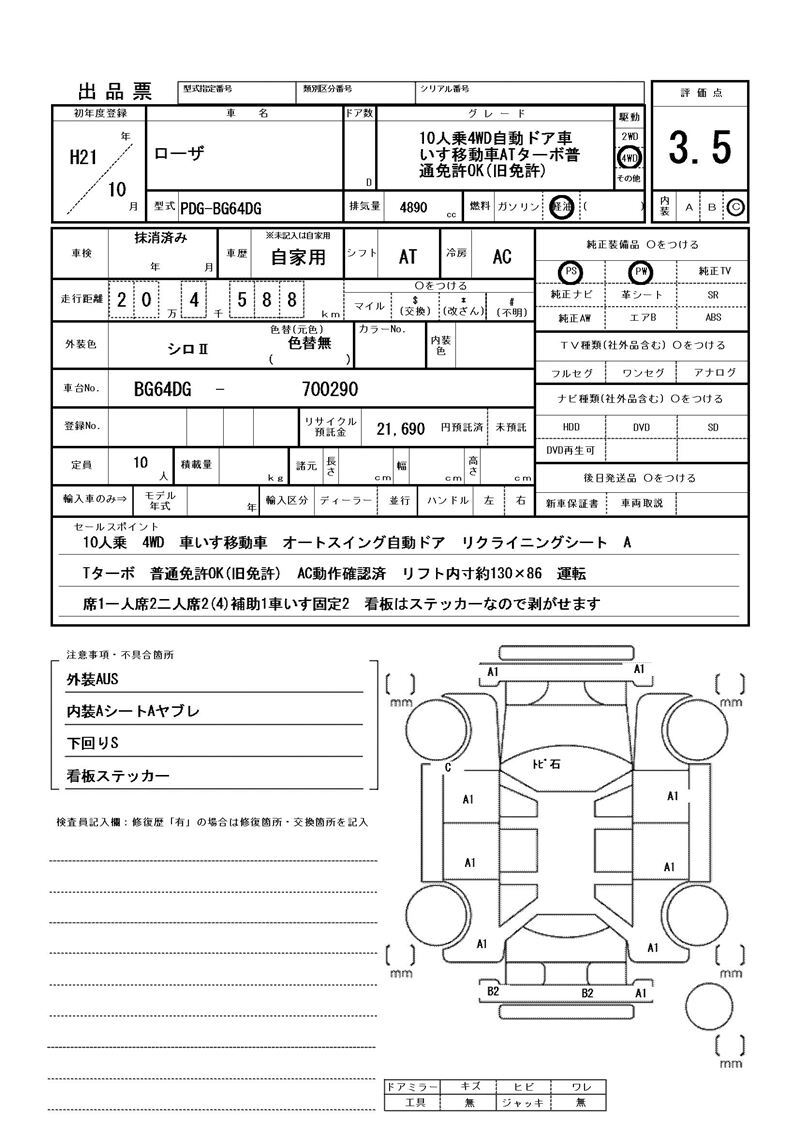 出品票
型式指定番号 類別区分番号 シリアル番号
評価点
3.5
内装 A B C
初年度登録 車名 ドア数 グレード 駆動
H21 年
10 月
ローザ
D
10人乗4WD自動ドア車
いす移動車ATターボ普
通免許OK(旧免許)
2WD
4WD
その他
型式 PDG-BG64DG 排気量 4890 cc 燃料 ガソリン 軽油 ( )
車検 抹消済み 年 月 車歴 ※未記入は自家用 自家用 シフト AT 冷房 AC
走行距離 2 0 万 4 千 5 8 8 km
〇をつける
マイル $(交換) *(改ざん) #(不明)
外装色 シロⅡ 色替(元色) 色替無 ( ) カラーNo. 内装色
車台No. BG64DG - 700290
登録No. リサイクル預託金 21,690 円預託済 未預託
定員 10 人 積載量 kg 諸元 長さ cm 幅 cm 高さ cm
輸入車のみ⇒ モデル年式 年 輸入区分 ディーラー 並行 ハンドル 左 右
純正装備品 〇をつける
PS PW 純正TV
純正ナビ 革シート SR
純正AW エアB ABS
TV種類(社外品含む) 〇をつける
フルセグ ワンセグ アナログ
ナビ種類(社外品含む) 〇をつける
HDD DVD SD
DVD再生可
後日発送品 〇をつける
新車保証書 車両取説
セールスポイント
10人乗 4WD 車いす移動車 オートスイング自動ドア リクライニングシート A
Tターボ 普通免許OK(旧免許) AC動作確認済 リフト内寸約130×86 運転
席1一人席2二人席2(4)補助1車いす固定2 看板はステッカーなので剥がせます
注意事項・不具合箇所
外装AUS
内装AシートAヤブレ
下回りS
看板ステッカー
検査員記入欄:修復歴「有」の場合は修復箇所・交換箇所を記入
A1 A1
mm mm
C トビ石
A1 A1
A1 A1
A1 A1
mm mm
B2 B2 A1
mm
ドアミラー キズ ヒビ ワレ
工具 無 ジャッキ 無